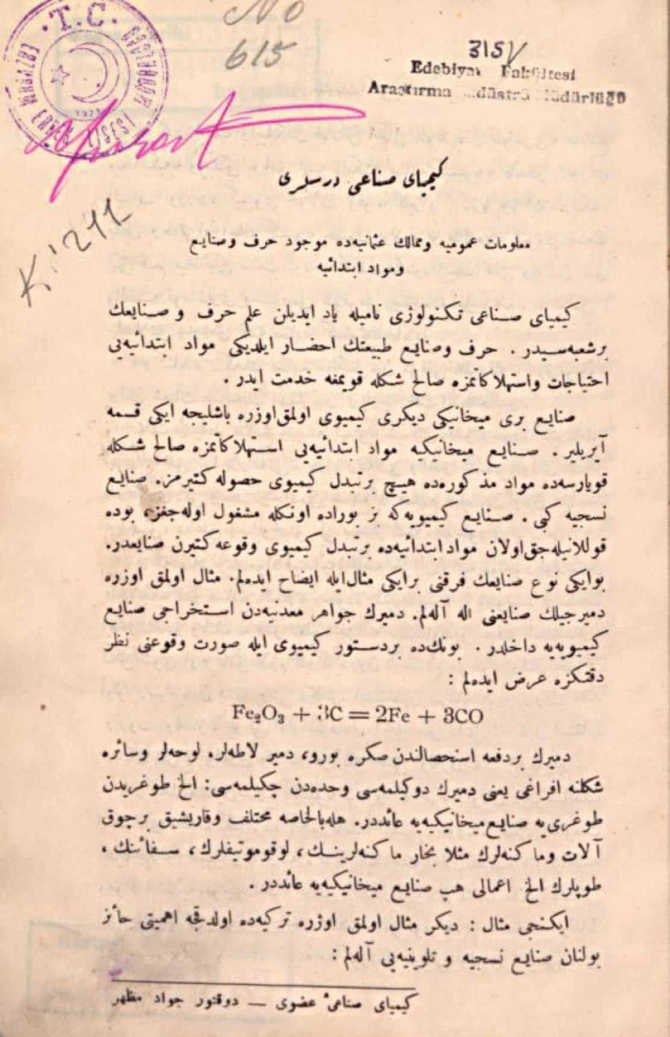 No
615
315
Edebiyat Fakültesi
Araştırma Müdürlüğü
T.C.
K.211
كیمیای صناعی درسلری
معلومات عمومیه وممالك عثمانیه‌ده موجود حرف وصنایع
ومواد ابتدائیه
كیمیای صناعی تكنولوژی نامیله یاد ایدیلن علم حرف و صنایعك
برشعبه‌سیدر . حرف وصنایع طبیعتك احضار ایلدیكی مواد ابتدائیه‌یی
احتیاجات واستهلاكاتمزه صالح شكله قویمغه خدمت ایدر .
صنایع بری میخانیكی دیكری كیمیوی اولمق‌اوزره باشلیجه ایكی قسمه
آیریلیر . صنایع میخانیكیه مواد ابتدائیه‌یی استهلاكاتمزه صالح شكله
قویارسه‌ده مواد مذكوره‌ده هیچ برتبدل كیمیوی حصوله كتیرمز. صنایع
نسجیه كبی . صنایع كیمیویه‌كه بز بوراده اونكله مشغول اوله‌جغز، بوده
قوللانیله‌جق‌اولان مواد ابتدائیه‌ده برتبدل كیمیوی وقوعه‌كتیرن صنایعدر.
بوایكی نوع صنایعك فرقنی برایكی مثال‌ایله ایضاح ایده‌لم. مثال اولمق اوزره
دمیرجیلك صنایعنی اله آله‌لم. دمیرك جواهر معدنیه‌دن استخراجی صنایع
كیمیویه‌یه داخلدر . بونك‌ده بردستور كیمیوی ایله صورت وقوعنی نظر
دقتكزه عرض ایده‌لم :
Fe₂O₃ + 3C = 2Fe + 3CO
دمیرك بردفعه استحصالندن صكره بورو، دمیر لاطه‌لر، لوحه‌لر وسائره
شكلنه افراغی یعنی دمیرك دوكیلمه‌سی وحده‌دن چكیلمه‌سی: الخ طوغریدن
طوغری‌یه صنایع‌میخانیكیه‌یه عائددر. هله‌بالخاصه مختلف وقاریشیق برچوق
آلات وماكنه‌لرك مثلا بخار ماكنه‌لرینك، لوقوموتیفلرك، سفائنك ،
طوپلرك الخ اعمالی هپ صنایع میخانیكیه‌یه عائددر .
ایكنجی مثال : دیكر مثال اولمق اوزره تركیه‌ده اولدقجه اهمیتی حائز
بولنان صنایع نسجیه و تلوینیه‌یی آله‌لم :
كیمیای صناعیٔ عضوی — دوقتور جواد مظهر